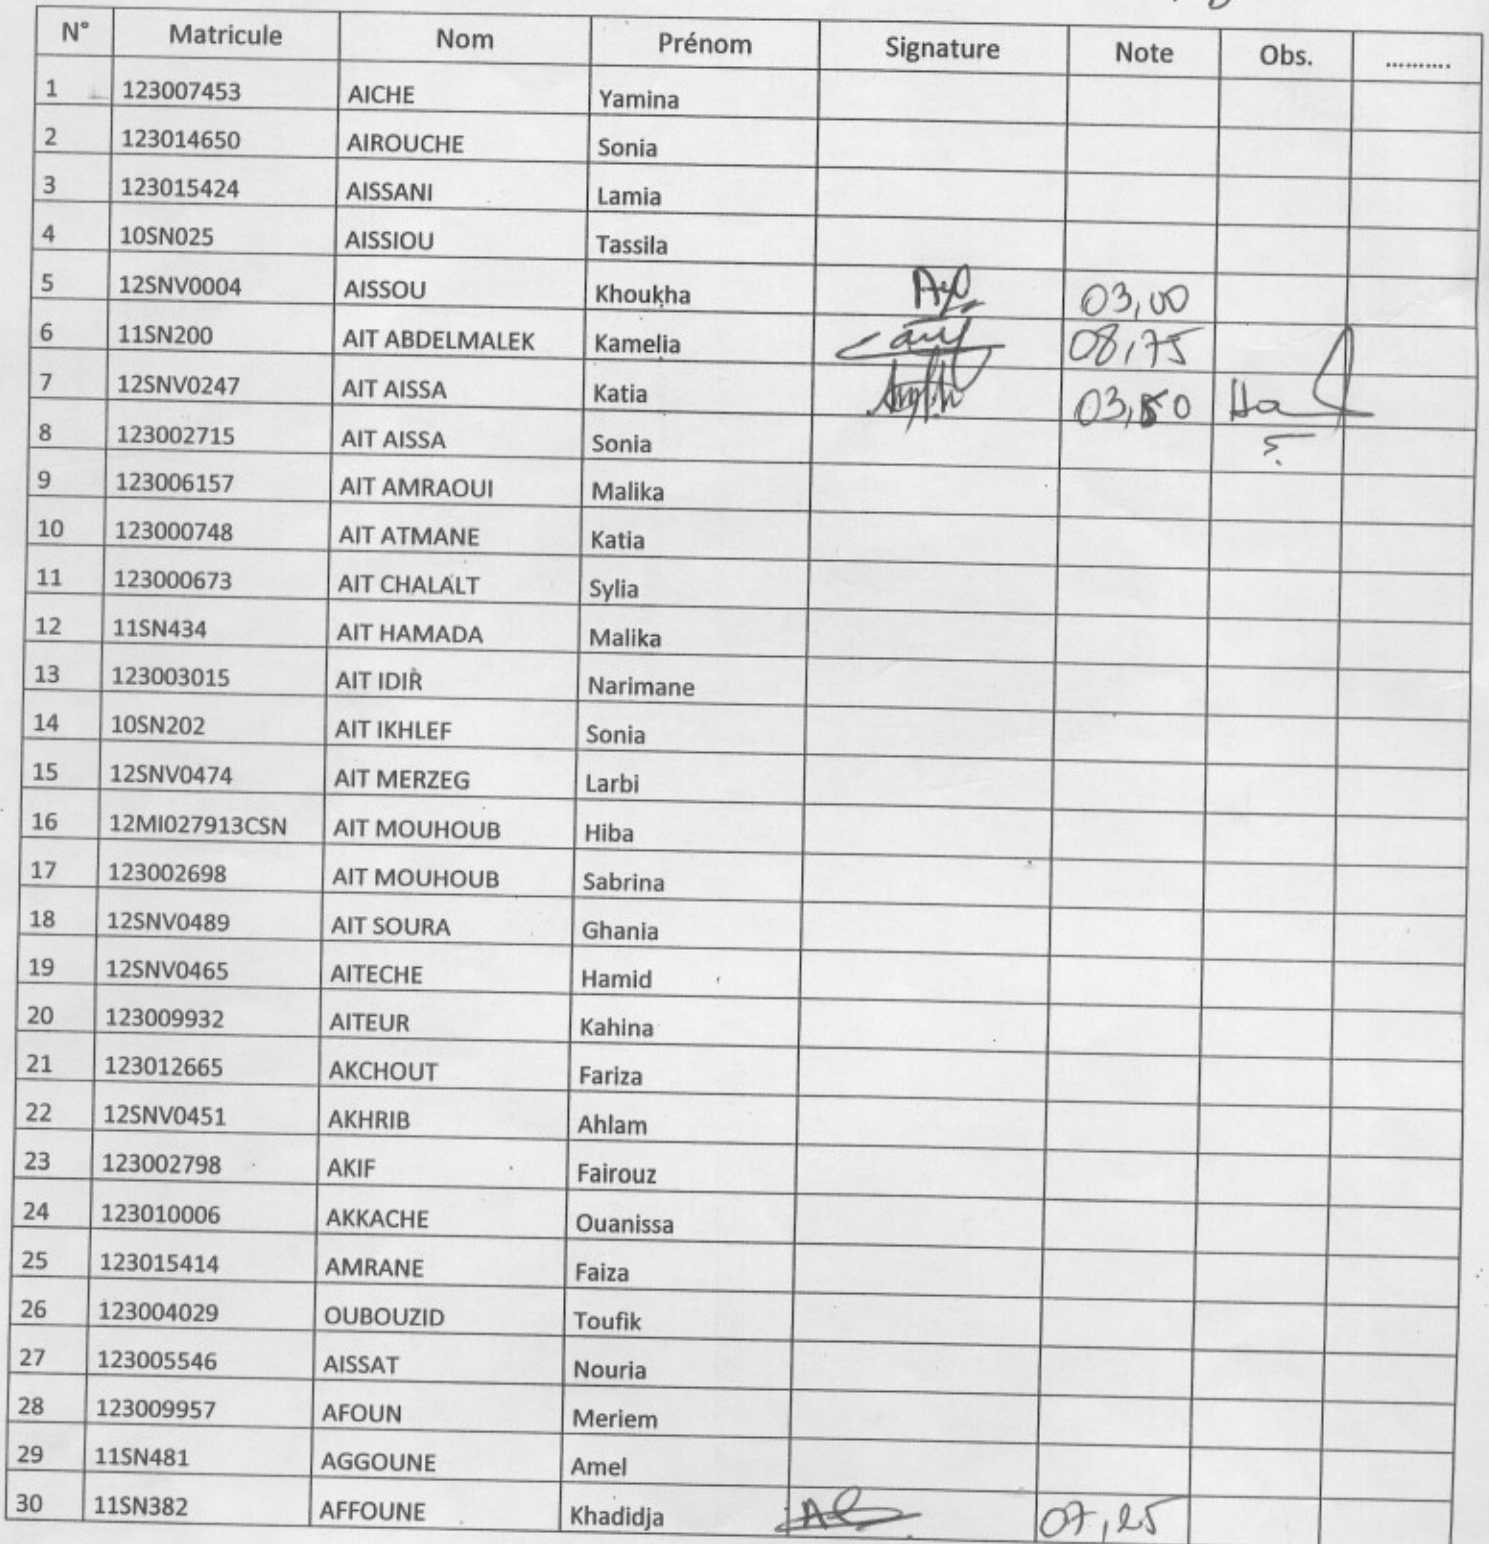 N° Matricule Nom Prénom Signature Note Obs. ..........
1 123007453 AICHE Yamina
2 123014650 AIROUCHE Sonia
3 123015424 AISSANI Lamia
4 10SN025 AISSIOU Tassila
5 12SNV0004 AISSOU Khoukha 03,00
6 11SN200 AIT ABDELMALEK Kamelia 08,75
7 12SNV0247 AIT AISSA Katia 03,50
8 123002715 AIT AISSA Sonia
9 123006157 AIT AMRAOUI Malika
10 123000748 AIT ATMANE Katia
11 123000673 AIT CHALALT Sylia
12 11SN434 AIT HAMADA Malika
13 123003015 AIT IDIR Narimane
14 10SN202 AIT IKHLEF Sonia
15 12SNV0474 AIT MERZEG Larbi
16 12MI027913CSN AIT MOUHOUB Hiba
17 123002698 AIT MOUHOUB Sabrina
18 12SNV0489 AIT SOURA Ghania
19 12SNV0465 AITECHE Hamid
20 123009932 AITEUR Kahina
21 123012665 AKCHOUT Fariza
22 12SNV0451 AKHRIB Ahlam
23 123002798 AKIF Fairouz
24 123010006 AKKACHE Ouanissa
25 123015414 AMRANE Faiza
26 123004029 OUBOUZID Toufik
27 123005546 AISSAT Nouria
28 123009957 AFOUN Meriem
29 11SN481 AGGOUNE Amel
30 11SN382 AFFOUNE Khadidja 07,25